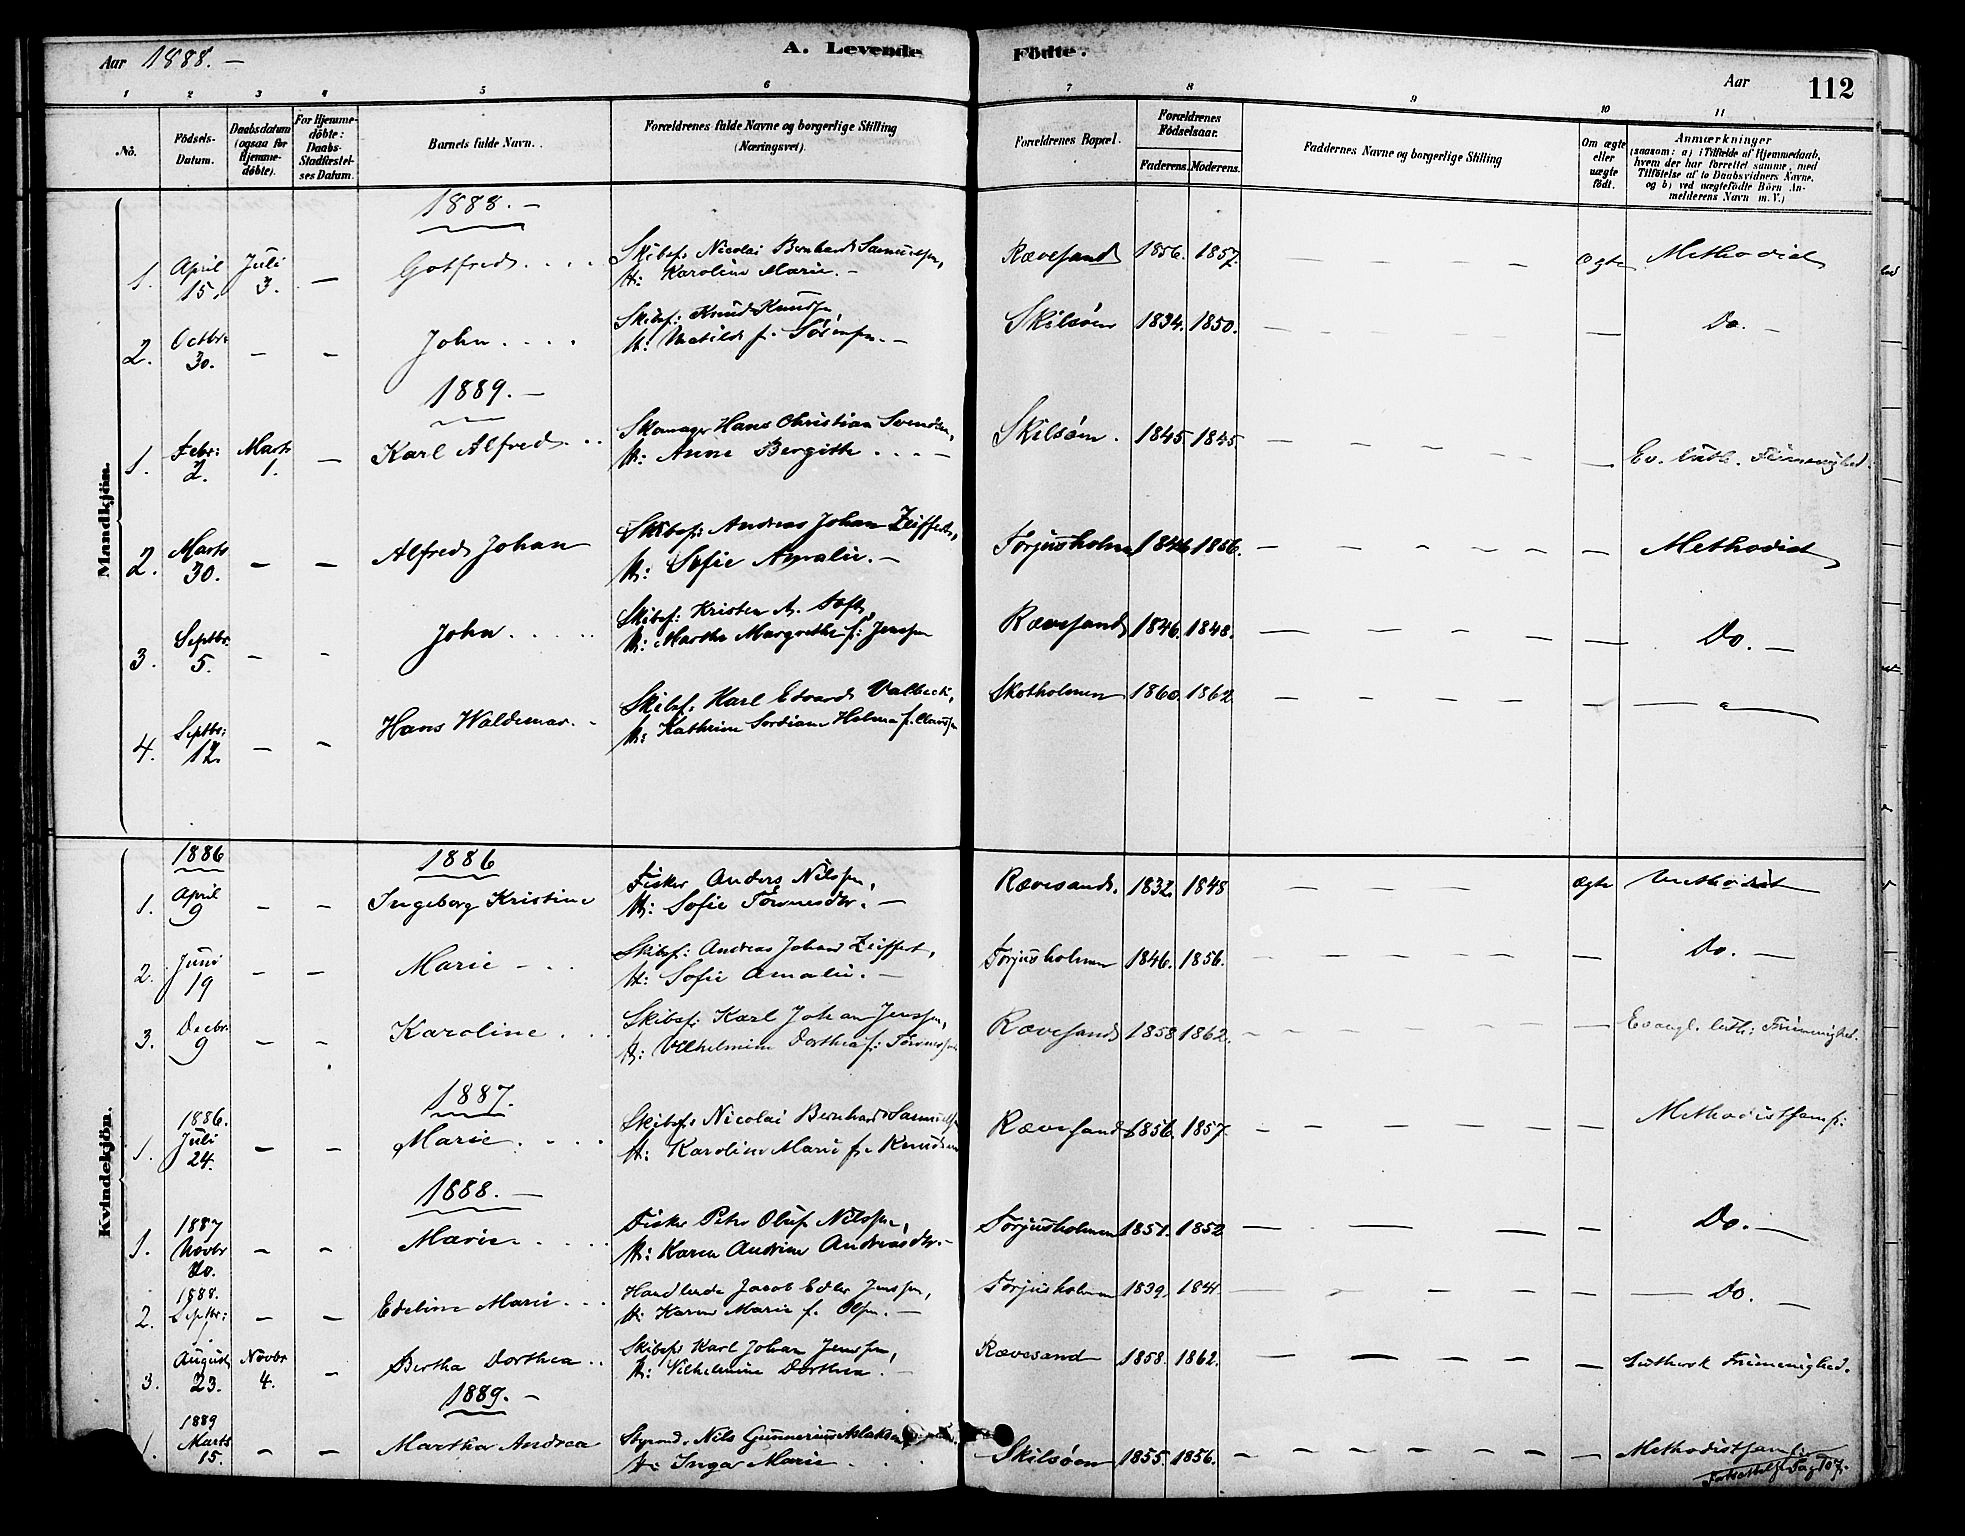 Aar 1888. —
A. Levende Födte.
Aar 112
1 2 3 4 5 6 7 8 9 10 11
No.
Födsels-Datum.
Daabsdatum (ogsaa for Hjemmedöbte).
For Hjemmedöbte: Daabs-Stadfæstelses Datum.
Barnets fulde Navn.
Forældrenes fulde Navne og borgerlige Stilling (Næringsvei).
Forældrenes Bopæl.
Forældrenes Födselsaar.
Faderens. Moderens.
Faddernes Navne og borgerlige Stilling
Om ægte eller uægte födt.
Anmærkninger
(saasom: a) i Tilfælde af Hjemmedaab,
hvem der har forrettet samme, med
Tilföielse af to Daabsvidners Navne,
og b) ved uægtefödte Börn An-
melderens Navn m. V.)
Mandkjön.
1888. —
1. April 15. Juli 3. — Gotfred . . . . Skibsf: Nicolai Bernhard Samuelsen, Rævesand 1856. 1857. — — — — — ægte Methodist
H: Karoline Marie. —
2. Octbr: 30. — — John . . . . Skibsf: Knud Knudsen, Skilsöen 1834. 1850. — — — — — — Do. —
H: Matilde f. Sörensen. —
1889. —
1. Febr: 2. Marts 1. — Karl Alfred . . Skomager Hans Christian Svendsen, Skilsöen. 1845. 1845. — — — — — — Ev. luth. Frimenighed.
H: Anne Bergitte . . . —
2. Marts 30. — — Alfred Johan Skibsf: Andreas Johan Zeiffert, Torjusholmen 1846. 1856. — — — — — — Methodist
H: Sofie Amalie. —
3. Septbr. 5. — — John . . . . . Skibsf: Kristen A. Toft, Rævesand 1846. 1848. — — — — — — Do. —
H: Marthe Margrethe f: Jenssen
4. Septbr: 12. — — Hans Waldemar. . Skibsf. Karl Edvard Valbeck, Skotholmen 1860. 1862 — — — — — — —
H: Kathrine Helma f.
Kvindekjön.
1886 1886
1. April 9 — — Ingeborg Kristine Fisker Anders Nilssen, Rævesand. 1832. 1848 — — — — ægte Methodist
H: Sofie —
2. Juni 19 — — Marie — . . Skibsf: Andreas Johan Zeiffert, Torjusholmen 1846. 1856. — — — — — — Do. —
H: Sofie Amalie. —
3. Decbr. 9 — — Karoline . . . Skibsf: Karl Johan Jenssen, Rævesand 1858 1862. — — — — — — Evangl. luth: Frimenighed.
H: Vilhelmine Dorthea f:
1887.
1. 1886. Juli 24. — — Marie . . . . Skibsf: Nicolai Bernhard Samuelsen Rævesand 1856. 1857. — — — — — — Methodistsamf:
H: Karoline Marie f. Knudsen
1888. —
1. 1887 Novbr 20. — — Marie . . . . Fisker Peter Oluf Nilssen, Torjusholmen 1851. 1852 — — — — Do. —
H: Karen Andrine Andreasdtr. —
2. 1888. Septbr: — — Edeline Marie . . . Handlende Jacob Jenssen, Torjusholmen 1839. 1841. — — — — — — Do. —
H: Karen Marie f. Olsen. —
3. August 23. Novbr 4. — Bertha Dorthea . . Skibsf: Karl Johan Jenssen, Rævesand 1858. 1862. — — — — — — Luthersk Frimenighed.
H: Vilhelmine Dorthea. —
1889. —
1. 1889 Marts 15. — — Martha Andrea Styrmd. Nils Gunnerius Aslaksen, Skilsöen 1855. 1856. — — — — — — Methodistsamf:
H: Inga Marie . . .
Fortsættelse Pag 107.